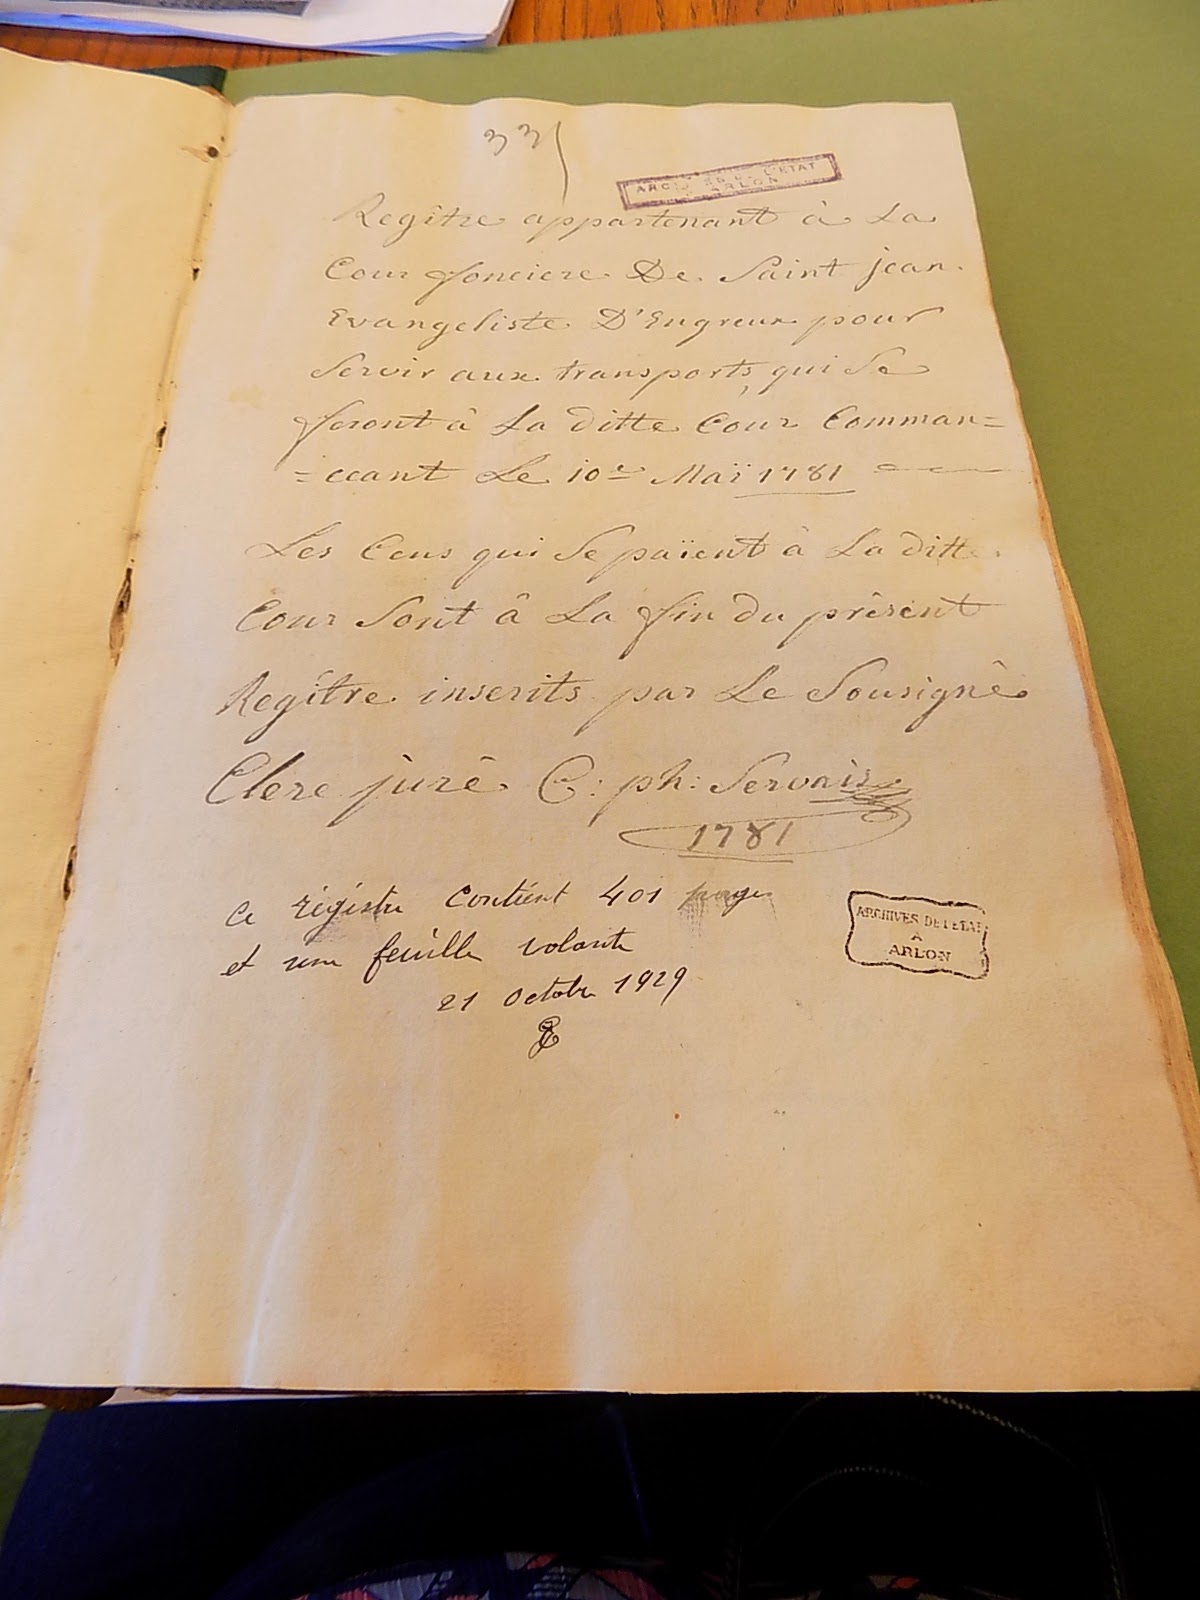 331
ARCHIVES DE L'ETAT
A ARLON
Regître appartenant à La
Cour fonciere De Saint jean
Evangeliste D'Engreux pour
Servir aux transports qui Se
feront à La ditte Cour Comman=
=ceant Le 10e Maï 1781
Les Cens qui Se païent à La ditte
Cour Sont â La fin du prêsent
Regître inscrits par Le Sousignê
Clerc jurê C: ph: Servais
1781
Ce régistre contient 401 pages
et une feuille volante
21 octobre 1929
ARCHIVES DE L'ETAT
A
ARLON